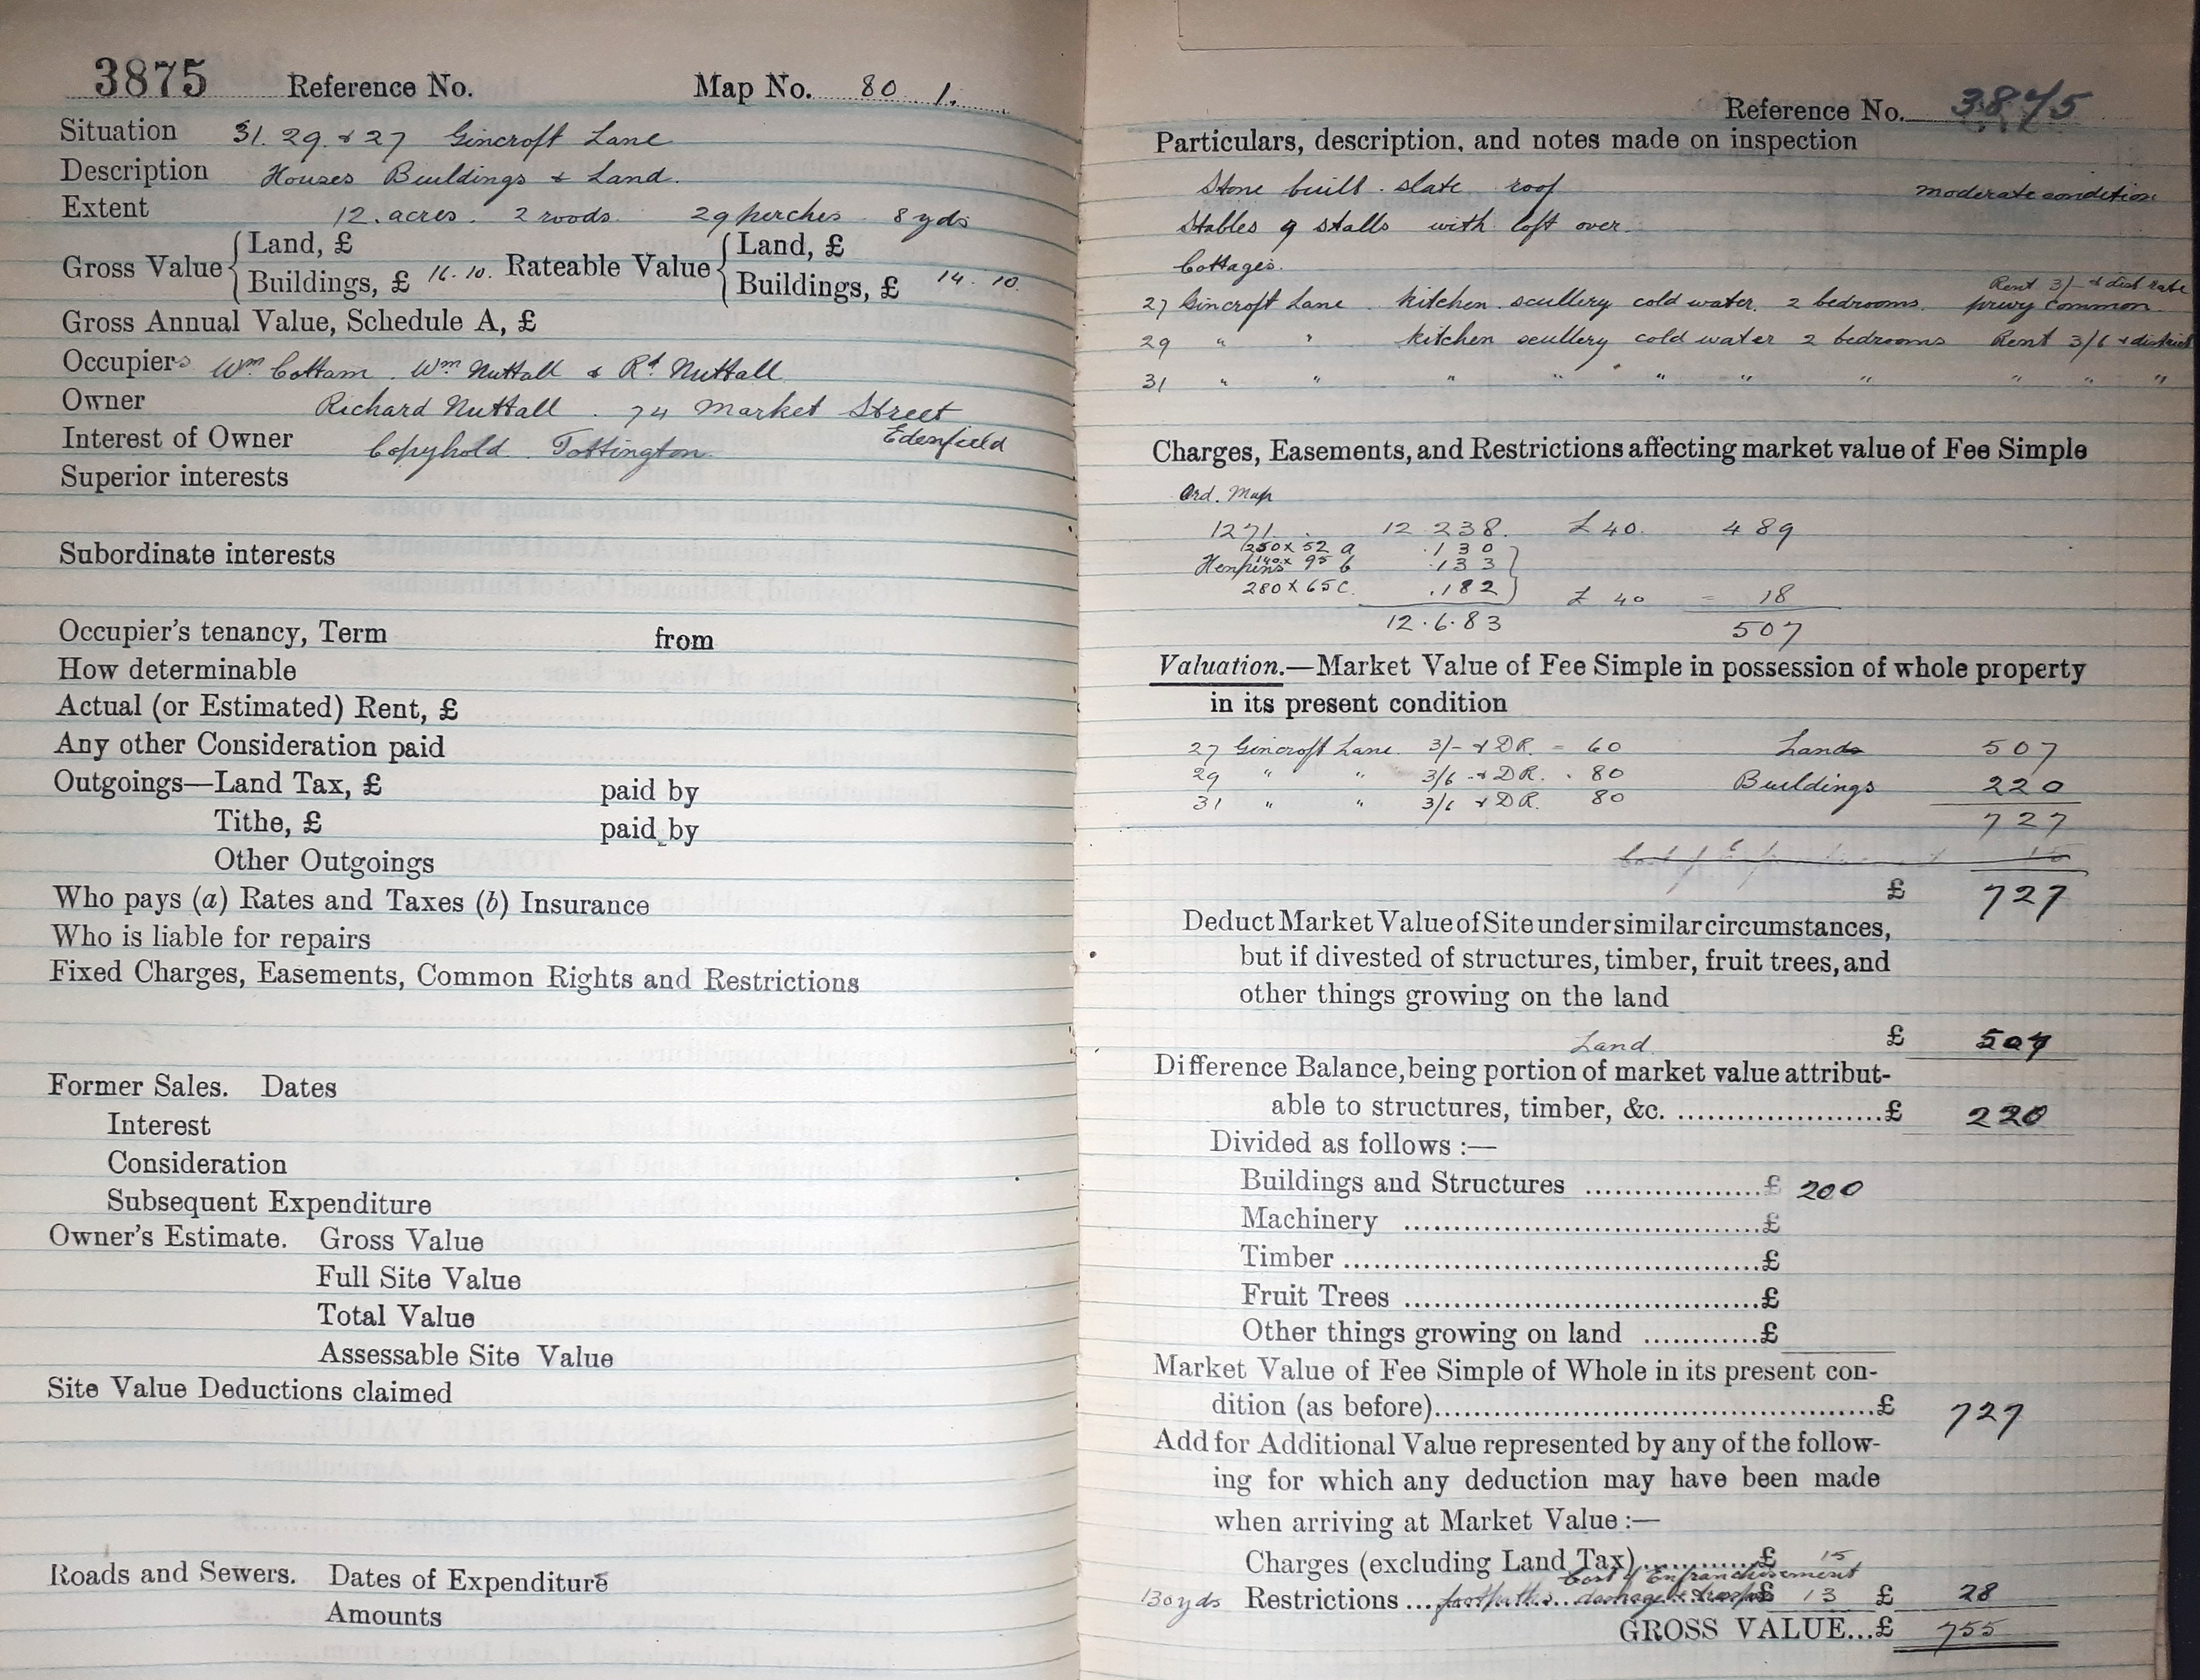 3875 Reference No. Map No. 80 . 1.
Situation 31. 29. & 27 Gincroft Lane
Description Houses Buildings & Land.
Extent 12. acres. 2 roods. 29 perches 8 yds
Gross Value { Land, £ Rateable Value { Land, £
Buildings, £ 16. 10. Buildings, £ 14. 10.
Gross Annual Value, Schedule A, £
Occupiers Wm Cottam. Wm Nuttall & Rd Nuttall
Owner Richard Nuttall . 74 Market Street
Edenfield
Interest of Owner Copyhold Tottington.
Superior interests
Subordinate interests
Occupier's tenancy, Term from
How determinable
Actual (or Estimated) Rent, £
Any other Consideration paid
Outgoings—Land Tax, £ paid by
Tithe, £ paid by
Other Outgoings
Who pays (a) Rates and Taxes (b) Insurance
Who is liable for repairs
Fixed Charges, Easements, Common Rights and Restrictions
Former Sales. Dates
Interest
Consideration
Subsequent Expenditure
Owner's Estimate. Gross Value
Full Site Value
Total Value
Assessable Site Value
Site Value Deductions claimed
Roads and Sewers. Dates of Expenditure
Amounts
Reference No. 3875
Particulars, description, and notes made on inspection
Stone built . slate roof moderate condition
Stables 9 stalls with loft over.
Cottages.
Rent 3/- & dist rate
27 Gincroft Lane kitchen. scullery cold water. 2 bedrooms. privy common.
29 " " kitchen scullery cold water 2 bedrooms Rent 3/6 & district
31 " " " " " " " " " "
Charges, Easements, and Restrictions affecting market value of Fee Simple
Ord. Map
1271. 12 238. £ 40. 489
250 x 52 a .130 }
140 x 95 b .133 }
280 x 65 c. .182 } £ 40 = 18
12.6.83 507
Valuation.—Market Value of Fee Simple in possession of whole property
in its present condition
27 Gincroft Lane. 3/- & DR. = 60 Land 507
29 " " 3/6 & DR. . 80 Buildings 220
31 " " 3/6 & DR. 80
727
£ 727
Deduct Market Value of Site under similar circumstances,
but if divested of structures, timber, fruit trees, and
other things growing on the land
Land £ 507
Difference Balance, being portion of market value attribut-
able to structures, timber, &c. ......£ 220
Divided as follows :—
Buildings and Structures ......£ 200
Machinery ......£
Timber ......£
Fruit Trees ......£
Other things growing on land ......£
Market Value of Fee Simple of Whole in its present con-
dition (as before)......£ 727
Add for Additional Value represented by any of the follow-
ing for which any deduction may have been made
when arriving at Market Value :—
Charges (excluding Land Tax)......£ 15
Cost of Enfranchisement
130 yds Restrictions ...footpaths.. damage £ 13 £ 28
GROSS VALUE...£ 755